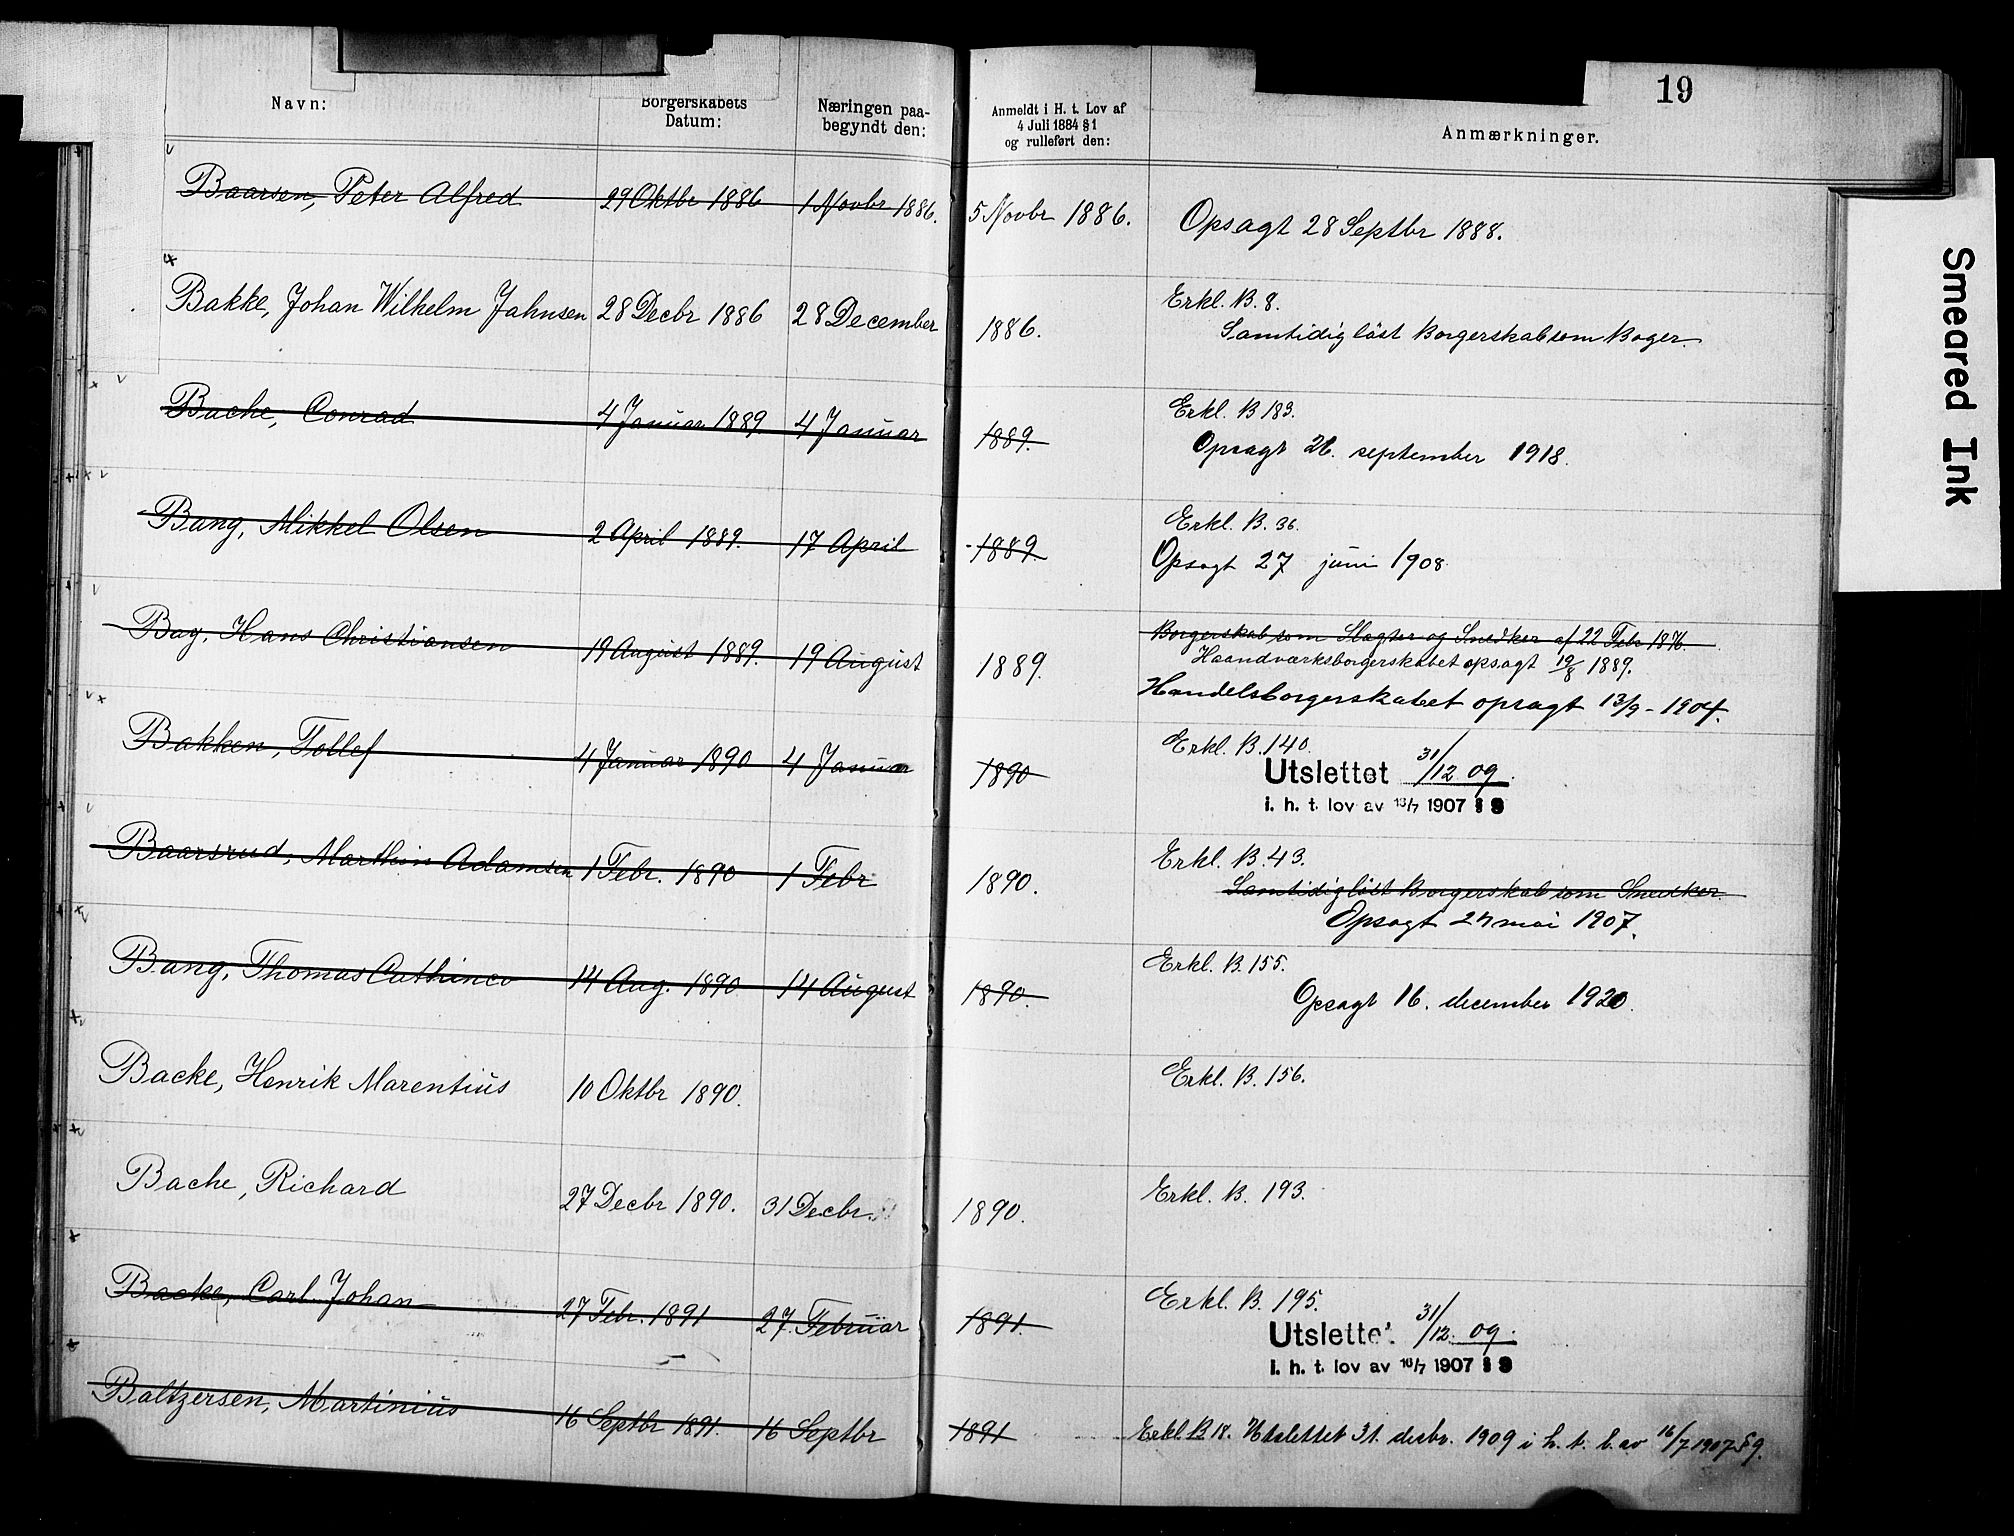 19
Navn:
Borgerskabets Datum:
Næringen paa-begyndt den:
Anmeldt i H. t. Lov af 4 Juli 1884 § 1 og rulleført den:
Anmærkninger.
Smeared Ink
Baarsen, Peter Alfred 29 Oktbr 1886 1 Novbr 1886. 5 Novbr 1886. Opsagt 28 Septbr 1888.
Erkl. B. 8.
Bakke, Johan Wilhelm Jahnsen 28 Decbr 1886 28 December 1886. Samtidig löst Borgerskab som Bager.
Erkl. B 183.
Bache, Conrad 4 Januar 1889. 4 Januar 1889. Opsagt 26. september 1918.
Erkl. B. 36.
Bang, Mikkel Olsen 2 April 1889. 17 April 1889. Opsagt 27 juni 1908.
Borgerskab som Slagter og Snedker af 22 Febr 1876.
Bay, Hans Christiansen 19 August 1889. 19 August 1889. Haandværksborgerskabet opsagt 19/8 1889.
Handelsborgerskabet opsagt 13/9 - 1904.
Erkl. B. 140.
Bakken, Tollef 4 Januar 1890 4 Januar 1890 Utslettet 31/12 09.
i. h. t. lov av /7 1907 § 9
Erkl. B. 43.
Baarsrud, Marthin Adamsen 1 Febr. 1890 1 Febr 1890. Samtidig löst Borgerskab som Snedker.
Opsagt 27 mai 1907.
Erkl. B. 155.
Bang, Thomas Cathinco 14 Aug. 1890 14 August 1890. Opsagt 16. december 1920.
Backe, Henrik Marentius 10 Oktbr 1890. Erkl. B. 156.
Bache, Richard 27 Decbr 1890. 31 Decbr. 1890. Erkl. B. 193.
Erkl. B. 195.
Backe, Carl Johan 27 Febr. 1891 27. Februar 1891. Utslettet 31/12 09.
i. h. t. lov av 16/7 1907 § 9
Baltzersen, Martinius 16 Septbr 1891. 16 Septbr 1891 Erkl. B 18. Utslettet 31. desbr. 1909 i h. t. l. av 16/7 1907 § 9.